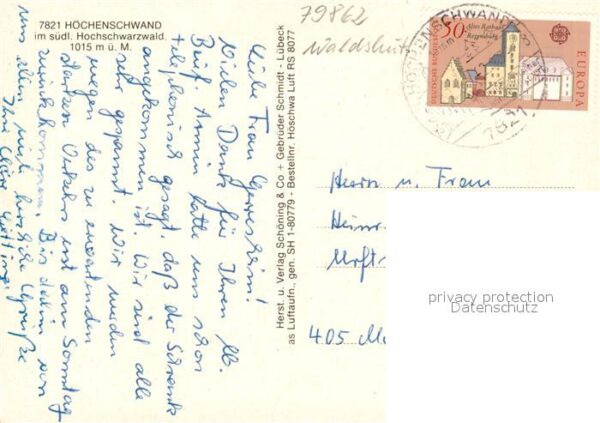 7821 HÖCHENSCHWAND
im südl. Hochschwarzwald
1015 m ü. M.
Liebe Frau
Vielen Dank für Ihren lb.
Brief. Armin hatte uns schon
telephonisch gesagt, daß der Schrank
angekommen ist. Wir sind alle
sehr gespannt. Wir werden
wegen des zu erwartenden
starken Verkehrs erst am Sonntag
zurückkommen. Bis dahin von
uns allen recht herzliche Grüße
Ihre
Herst. u. Verlag Schöning & Co + Gebrüder Schmidt - Lübeck
as Luftaufn., gen. SH 1-80779 - Bestellnr. Höschwa Luft RS 8077
79862
Waldshut
50
Altes Rathaus
Regensburg
EUROPA
DEUTSCHE BUNDESPOST
HÖCHENSCHWAND
7821
Herrn u. Frau
Heinr.
405 M
privacy protection
Datenschutz